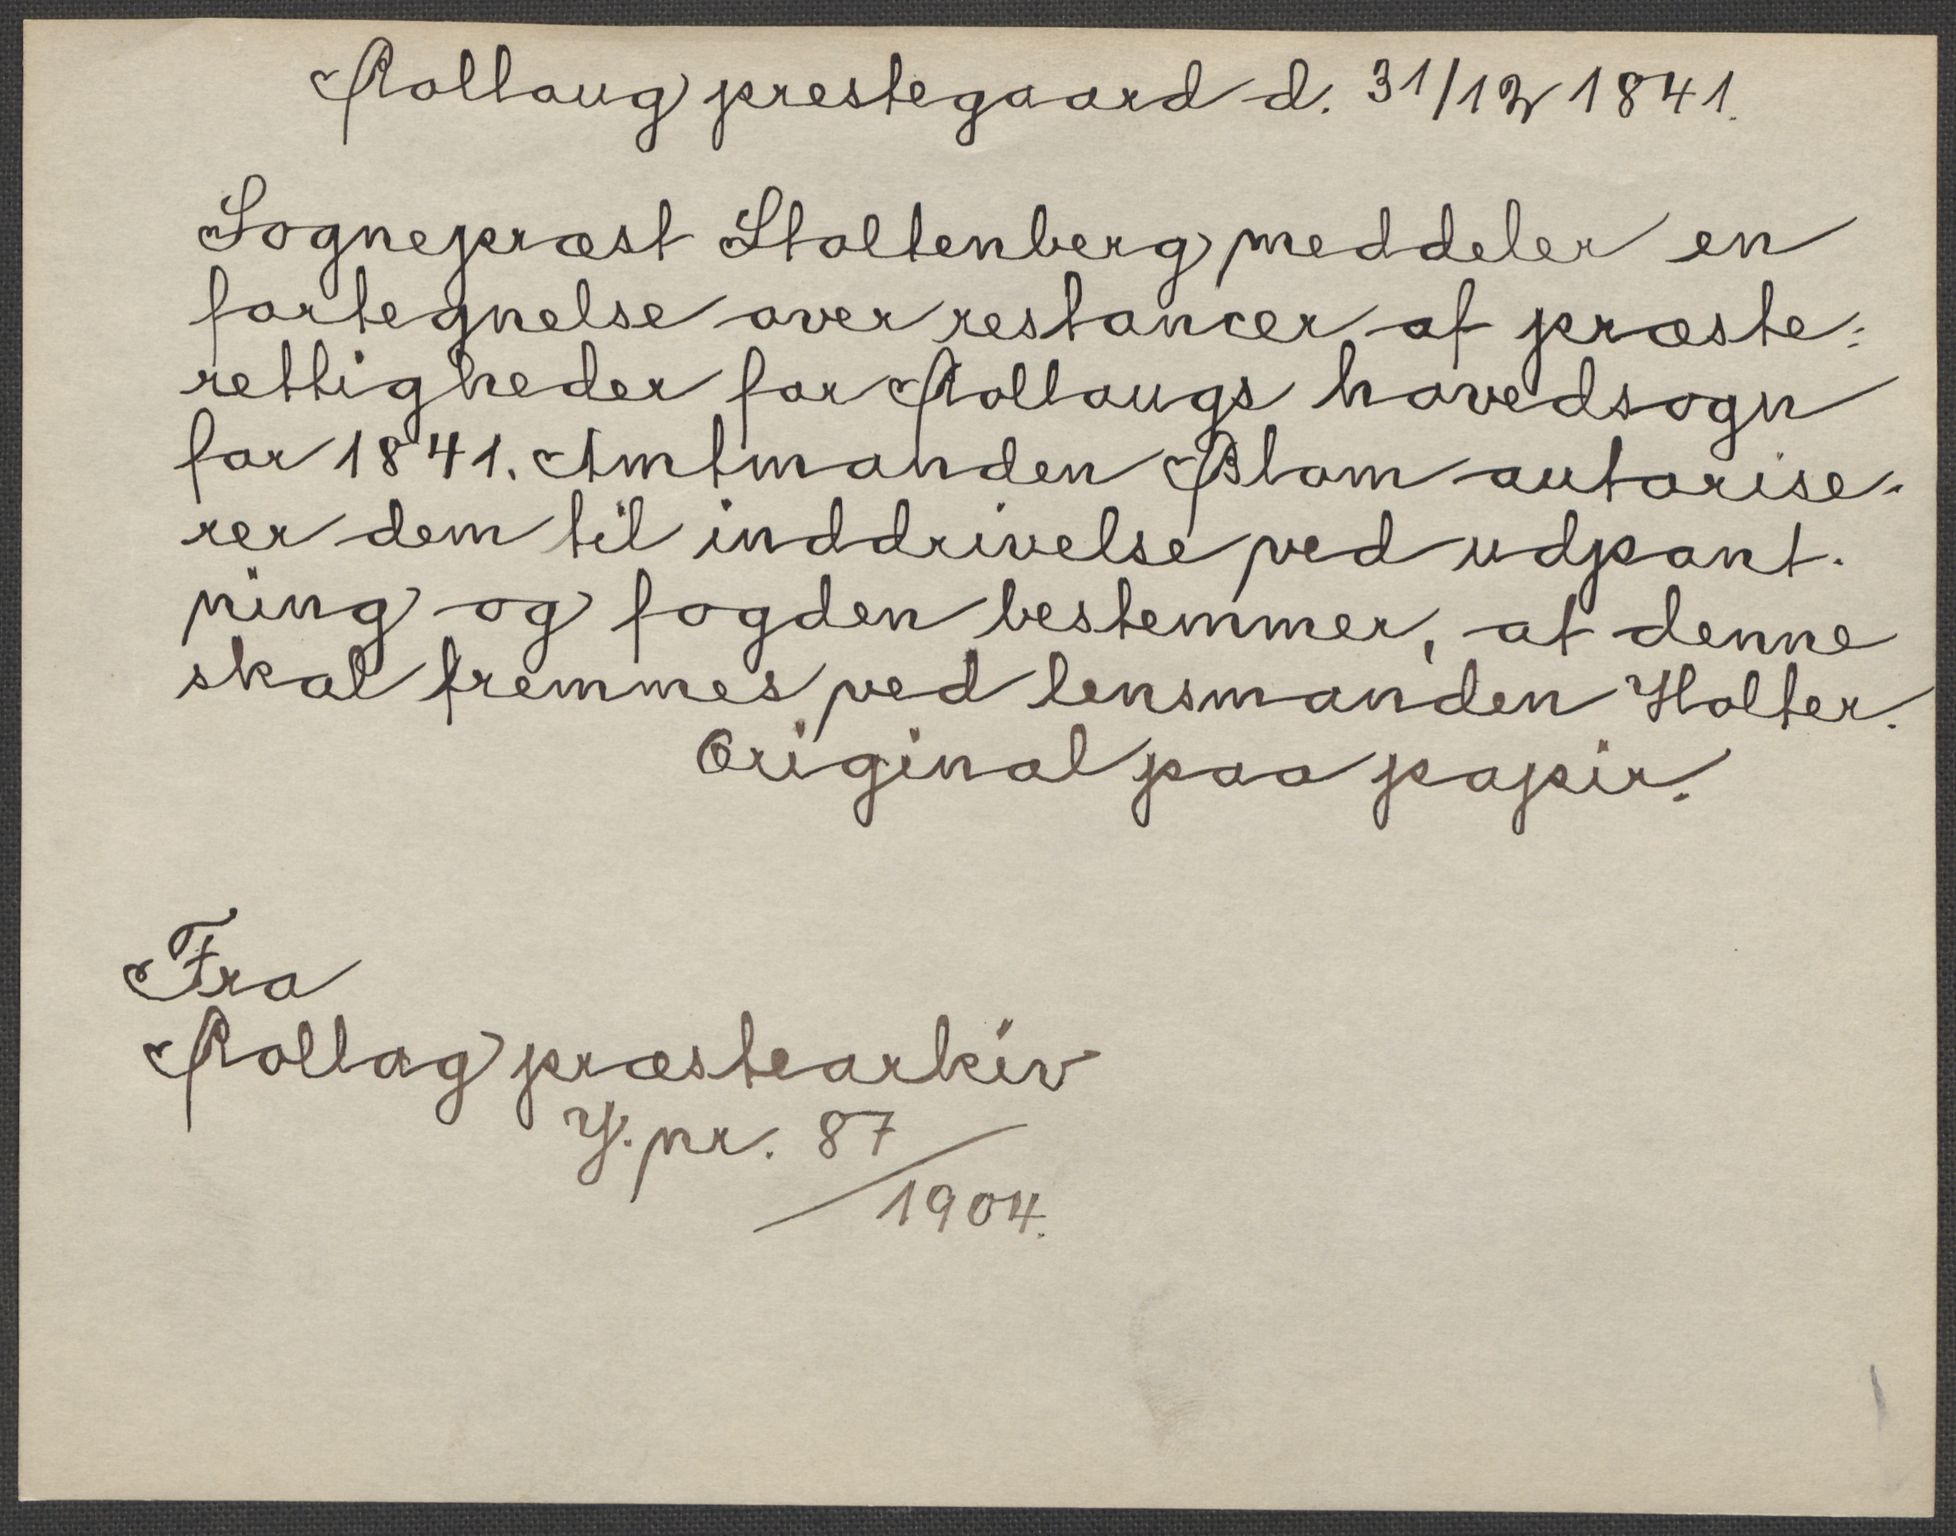 Rollaug prestegaard d. 31/12 1841.
Sognepræst Stoltenberg meddeler en
fortegnelse over restancer af præste:
rettigheder for Rollaugs hovedsogn
for 1841. Amtmanden Blom autorise-
rer dem til inddrivelse ved udpant-
ning og fogden bestemmer, at denne
skal fremmes ved lensmanden Holter.
Original paa papir.
Fra
Rollag præstearkiv
J. nr. 87/1904.